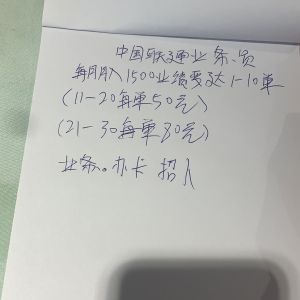 中国联通业务员
每月月入1500业绩要达1-10单
(11-20每单50元)
(21-30每单80元)
业务。办卡 招人